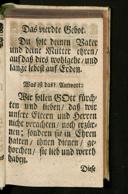 Das vierdte Gebot.
Du solt deinen Vater
und deine Mutter ehren,
auf daß dirs wohlgehe, und
lange lebest auf Erden.
Was ist das? Antwort:
Wir sollen GOtt fürch-
ten und lieben, daß wir
unsere Eltern und Herren
nicht verachten, noch erzör-
nen; sondern sie in Ehren
halten, ihnen dienen, ge-
horchen, sie lieb und werth
haben.
Diese